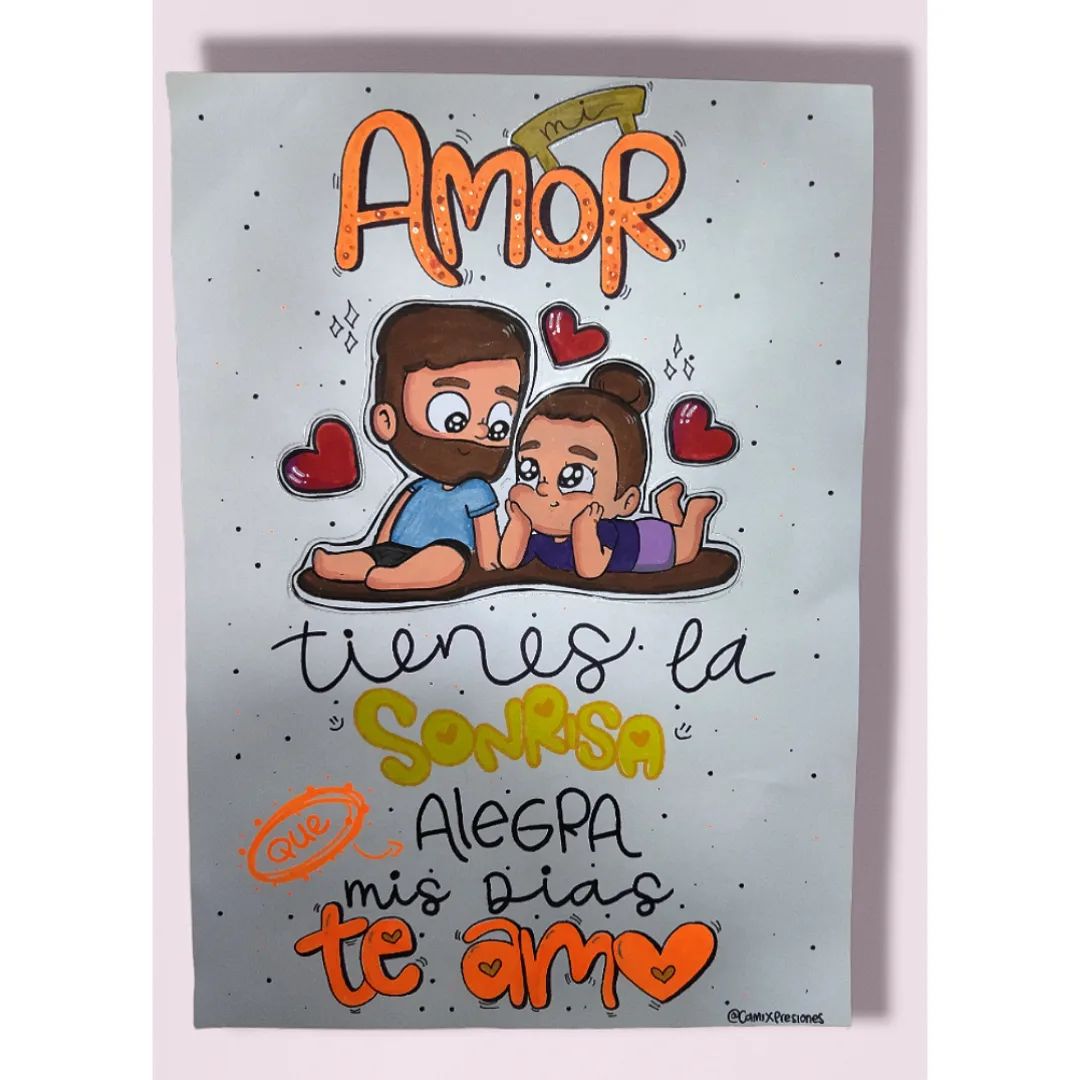 mi
AMOR
tienes la
SONRISA
QUE ALEGRA
mis Dias
te amo
@CamiXpresiones